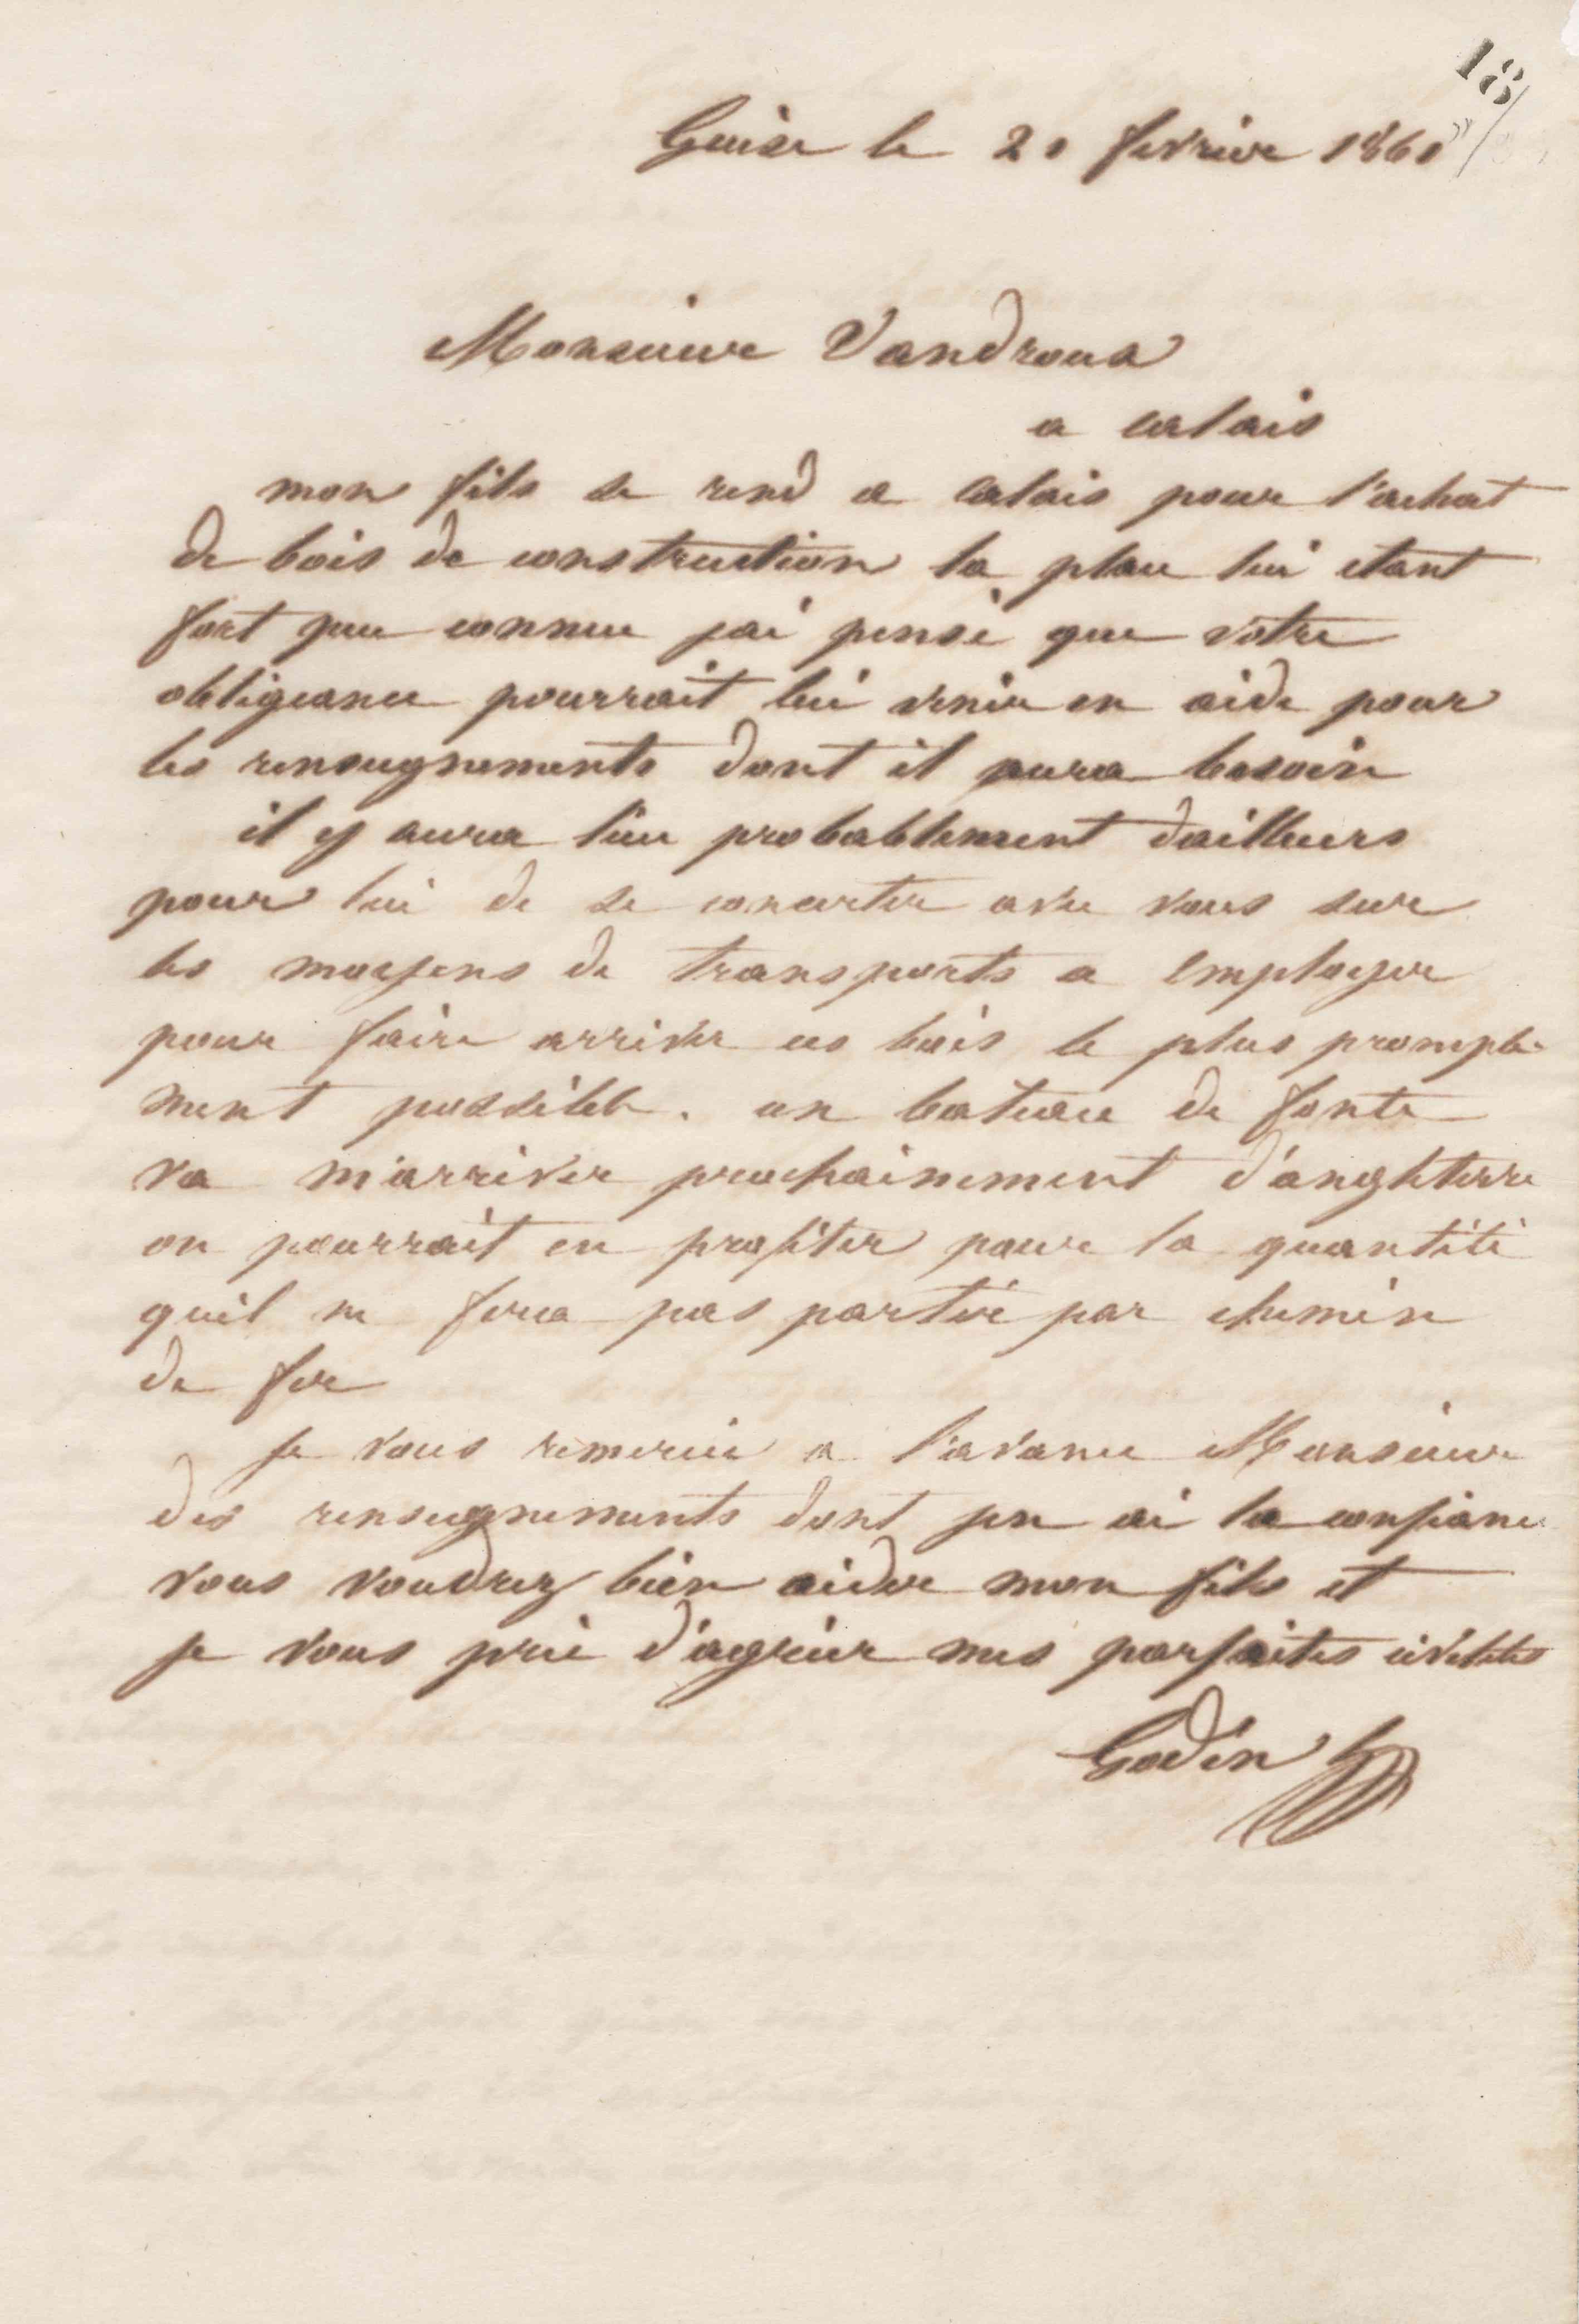 18
Guise le 20 fevrier 1860
Monsieur Vandroux
a calais
mon fils se rend a calais pour l'achat
de bois de construction la place lui etant
fort peu connue jai pensé que votre
obligeance pourrait lui venir en aide pour
les renseignements dont il aura besoin
il y aura lieu probablement dailleurs
pour lui de se concerter avec vous sur
les moyens de transports a employer
pour faire arriver ces bois le plus prompte-
ment possible. un bateau de fonte
va m'arriver prochainement d'angleterre
on pourrait en profiter pour la quantité
quil ne fera pas partir par chemin
de fer
je vous remercie a l'avance Monsieur
des renseignements dont jen ai la confiance
vous voudrez bien aider mon fils et
je vous prie d'agréer mes parfaites civilités
Godin